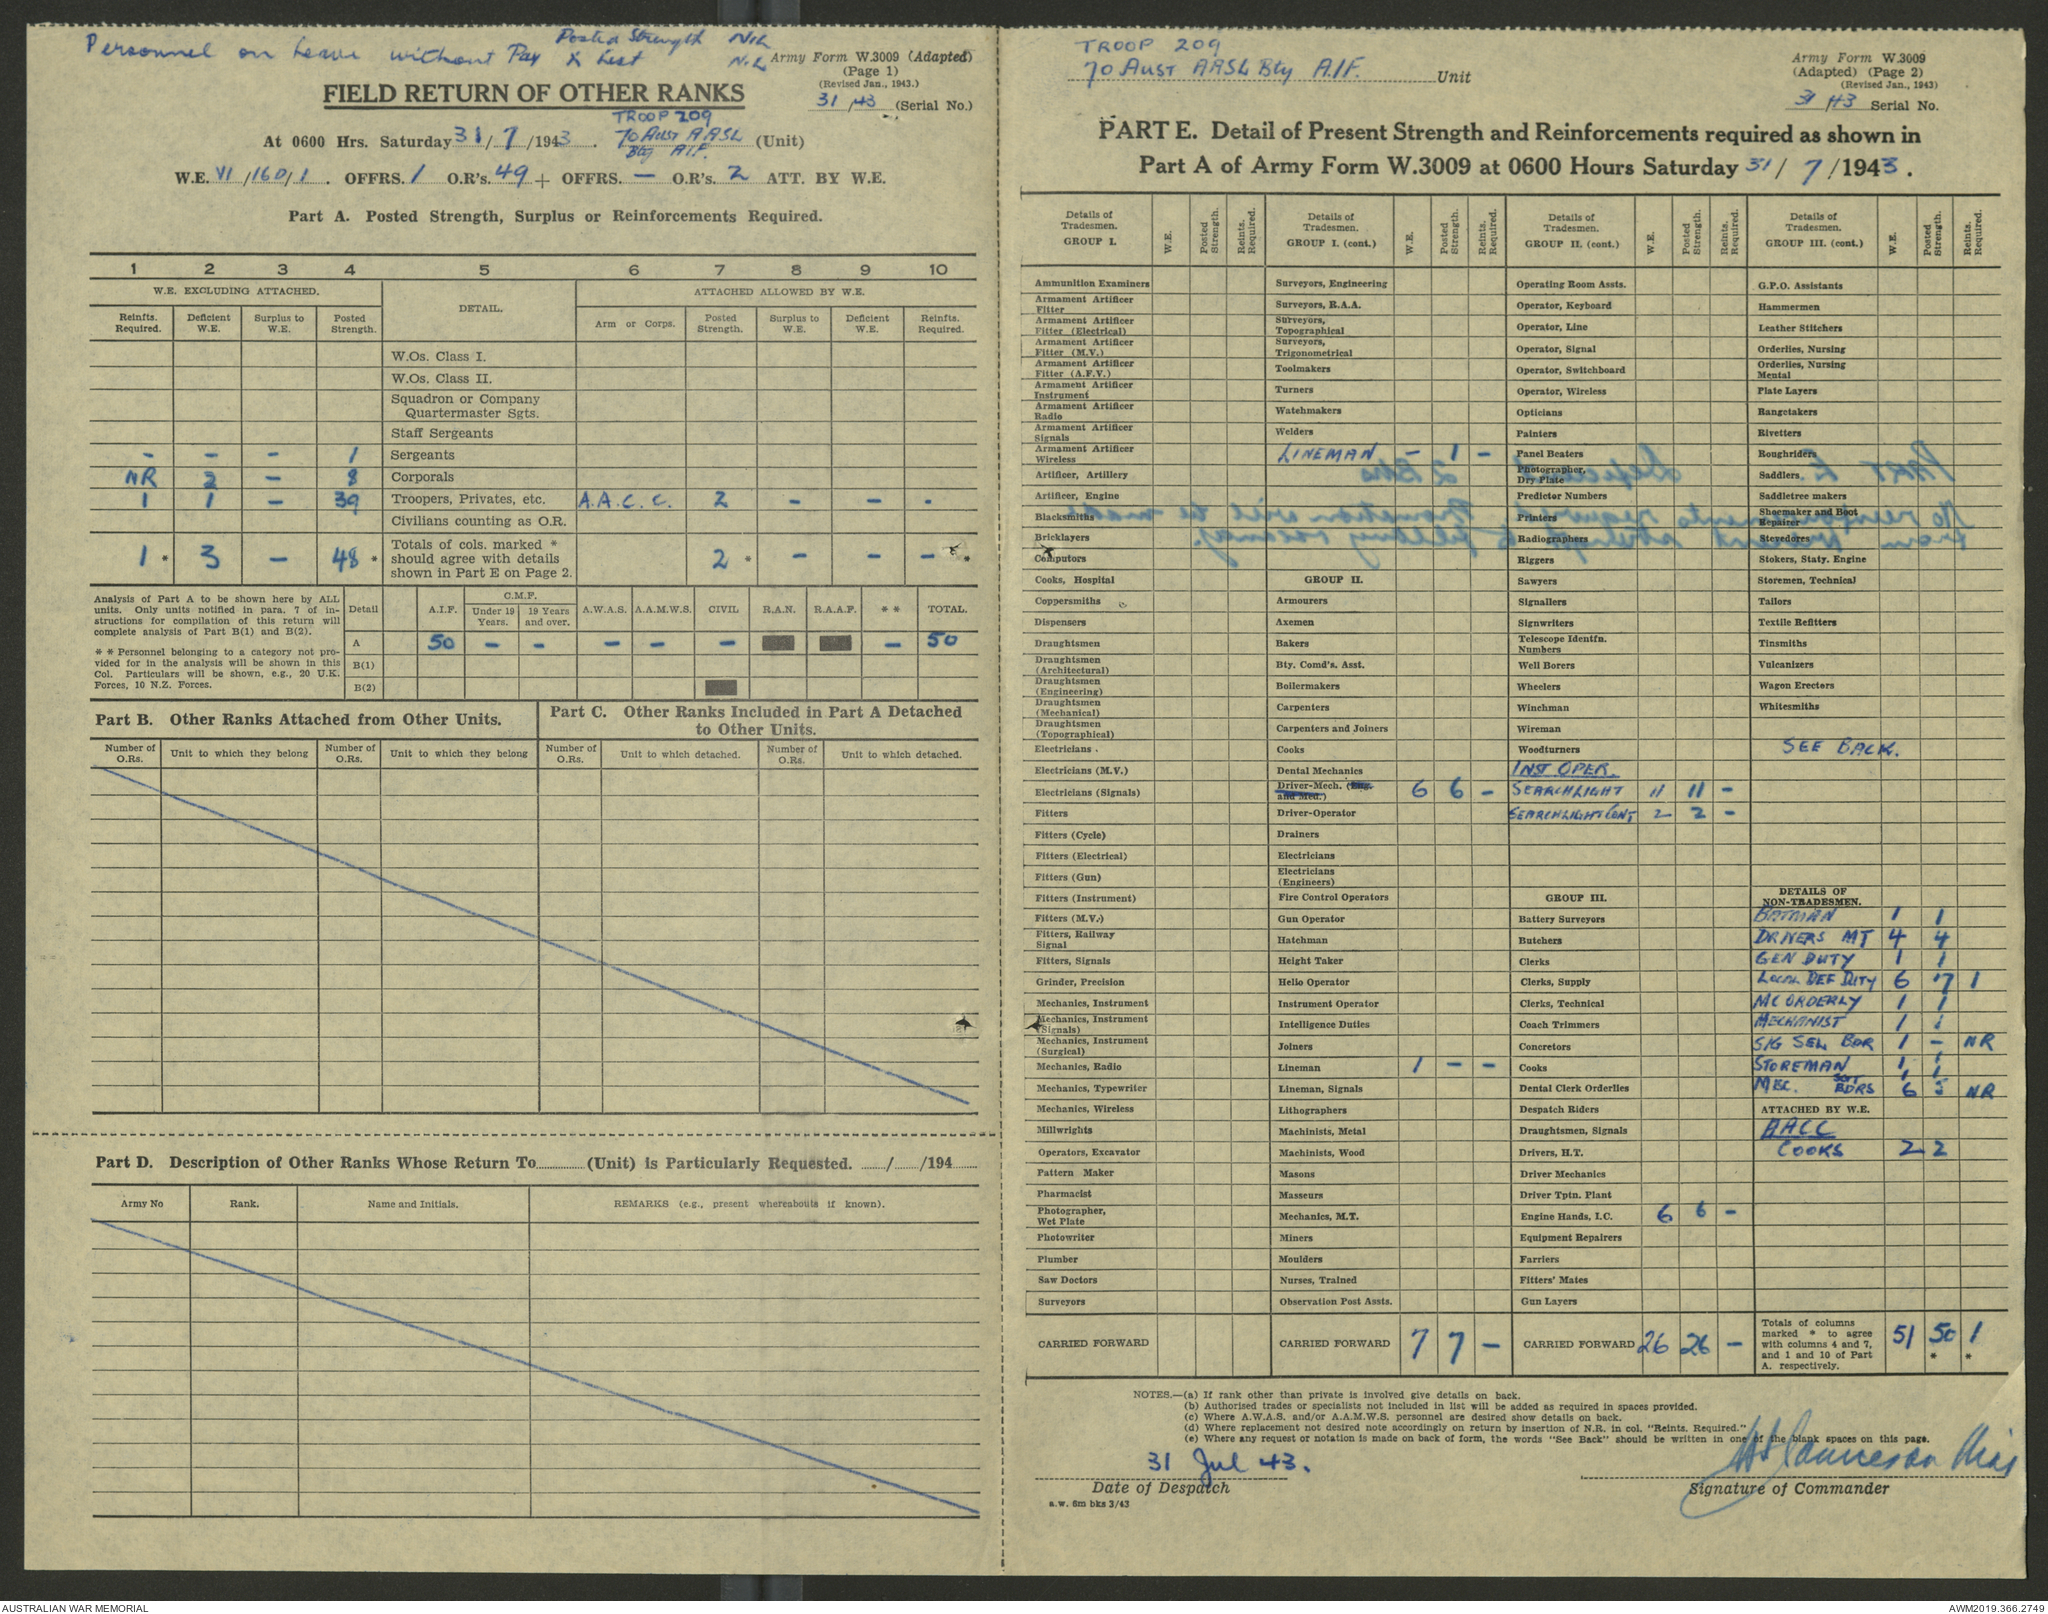 Personnel on Leave without Pay & Lest
Posted Strength NIL
NIL
Army Form W.3009 (Adapted)
(Page 1)
(Revised Jan., 1943.)
31/43 (Serial No.)
FIELD RETURN OF OTHER RANKS
At 0600 Hrs. Saturday 31/7/1943. TROOP 209 70 Aust AASL Bty AIF. (Unit)
W.E. VI/160/1. OFFRS. 1 O.R's. 49 + OFFRS. — O.R's. 2 ATT. BY W.E.
Part A. Posted Strength, Surplus or Reinforcements Required.
1 2 3 4 5 6 7 8 9 10
W.E. EXCLUDING ATTACHED. DETAIL. ATTACHED ALLOWED BY W.E.
Reinfts. Required. Deficient W.E. Surplus to W.E. Posted Strength. Arm or Corps. Posted Strength. Surplus to W.E. Deficient W.E. Reinfts. Required.
W.Os. Class I.
W.Os. Class II.
Squadron or Company
Quartermaster Sgts.
Staff Sergeants
- - - 1 Sergeants
NR 2 - 8 Corporals
1 1 - 39 Troopers, Privates, etc. A.A.C.C. 2 - - -
Civilians counting as O.R.
1 * 3 - 48 * Totals of cols. marked * should agree with details shown in Part E on Page 2. 2 * - - - *
Analysis of Part A to be shown here by ALL
units. Only units notified in para. 7 of in-
structions for compilation of this return will
complete analysis of Part B(1) and B(2).
* * Personnel belonging to a category not pro-
vided for in the analysis will be shown in this
Col. Particulars will be shown, e.g., 20 U.K.
Forces, 10 N.Z. Forces.
Detail A.I.F. C.M.F. Under 19 Years. 19 Years and over. A.W.A.S. A.A.M.W.S. CIVIL R.A.N. R.A.A.F. * * TOTAL.
A 50 - - - - - - 50
B(1)
B(2)
Part B. Other Ranks Attached from Other Units.
Part C. Other Ranks Included in Part A Detached
to Other Units.
Number of O.Rs. Unit to which they belong Number of O.Rs. Unit to which they belong Number of O.Rs. Unit to which detached. Number of O.Rs. Unit to which detached.
Part D. Description of Other Ranks Whose Return To (Unit) is Particularly Requested. / /194
Army No Rank. Name and Initials. REMARKS (e.g., present whereabouts if known).
TROOP 209
70 Aust AASL Bty A.I.F. Unit
Army Form W.3009
(Adapted) (Page 2)
(Revised Jan., 1943)
31/43 Serial No.
PART E. Detail of Present Strength and Reinforcements required as shown in
Part A of Army Form W.3009 at 0600 Hours Saturday 31/7/1943.
Details of Tradesmen. GROUP I. W.E. Posted Strength. Reints. Required.
Ammunition Examiners
Armament Artificer Fitter
Armament Artificer Fitter (Electrical)
Armament Artificer Fitter (M.V.)
Armament Artificer Fitter (A.F.V.)
Armament Artificer Instrument
Armament Artificer Radio
Armament Artificer Signals
Armament Artificer Wireless
Artificer, Artillery
Artificer, Engine
Blacksmiths
Bricklayers
Computors
Cooks, Hospital
Coppersmiths
Dispensers
Draughtsmen
Draughtsmen (Architectural)
Draughtsmen (Engineering)
Draughtsmen (Mechanical)
Draughtsmen (Topographical)
Electricians
Electricians (M.V.)
Electricians (Signals)
Fitters
Fitters (Cycle)
Fitters (Electrical)
Fitters (Gun)
Fitters (Instrument)
Fitters (M.V.)
Fitters, Railway Signal
Fitters, Signals
Grinder, Precision
Mechanics, Instrument
Mechanics, Instrument (Signals)
Mechanics, Instrument (Surgical)
Mechanics, Radio
Mechanics, Typewriter
Mechanics, Wireless
Millwrights
Operators, Excavator
Pattern Maker
Pharmacist
Photographer, Wet Plate
Photowriter
Plumber
Saw Doctors
Surveyors
CARRIED FORWARD
Details of Tradesmen. GROUP I. (cont.) W.E. Posted Strength. Reints. Required.
Surveyors, Engineering
Surveyors, R.A.A.
Surveyors, Topographical
Surveyors, Trigonometrical
Toolmakers
Turners
Watchmakers
Welders
LINEMAN - 1 -
GROUP II.
Armourers
Axemen
Bakers
Bty. Comd's. Asst.
Boilermakers
Carpenters
Carpenters and Joiners
Cooks
Dental Mechanics
Driver-Mech. (Eng. and Med.) 6 6 -
Driver-Operator
Drainers
Electricians
Electricians (Engineers)
Fire Control Operators
Gun Operator
Hatchman
Height Taker
Helio Operator
Instrument Operator
Intelligence Duties
Joiners
Lineman 1 - -
Lineman, Signals
Lithographers
Machinists, Metal
Machinists, Wood
Masons
Masseurs
Mechanics, M.T.
Miners
Moulders
Nurses, Trained
Observation Post Assts.
CARRIED FORWARD 7 7 -
Details of Tradesmen. GROUP II. (cont.) W.E. Posted Strength. Reints. Required.
Operating Room Assts.
Operator, Keyboard
Operator, Line
Operator, Signal
Operator, Switchboard
Operator, Wireless
Opticians
Painters
Panel Beaters
Photographer, Dry Plate
Predictor Numbers
Printers
Radiographers
Riggers
Sawyers
Signallers
Signwriters
Telescope Identfn. Numbers
Well Borers
Wheelers
Winchman
Wireman
Woodturners
INST OPER.
SEARCHLIGHT 11 11 -
SEARCHLIGHT CONT 2 2 -
GROUP III.
Battery Surveyors
Butchers
Clerks
Clerks, Supply
Clerks, Technical
Coach Trimmers
Concretors
Cooks
Dental Clerk Orderlies
Despatch Riders
Draughtsmen, Signals
Drivers, H.T.
Driver Mechanics
Driver Tptn. Plant
Engine Hands, I.C. 6 6 -
Equipment Repairers
Farriers
Fitters' Mates
Gun Layers
CARRIED FORWARD 26 26 -
Details of Tradesmen. GROUP III. (cont.) W.E. Posted Strength. Reints. Required.
G.P.O. Assistants
Hammermen
Leather Stitchers
Orderlies, Nursing
Orderlies, Nursing Mental
Plate Layers
Rangetakers
Rivetters
Roughriders
Saddlers
Saddletree makers
Shoemaker and Boot Repairer
Stevedores
Stokers, Staty. Engine
Storemen, Technical
Tailors
Textile Refitters
Tinsmiths
Vulcanizers
Wagon Erectors
Whitesmiths
SEE BACK.
DETAILS OF NON-TRADESMEN.
BATMAN 1 1
DRIVERS MT 4 4
GEN DUTY 1 1
LOCAL DEF DUTY 6 7 1
MC ORDERLY 1 1
MECHANIST 1 1
SIG SEN BDR 1 - NR
STOREMAN 1 1
MEC. SGT BDRS 6 5 NR
ATTACHED BY W.E.
AACC
COOKS 2 2
Totals of columns marked * to agree with columns 4 and 7, and 1 and 10 of Part A. respectively. 51 50 * 1 *
NOTES.—(a) If rank other than private is involved give details on back.
(b) Authorised trades or specialists not included in list will be added as required in spaces provided.
(c) Where A.W.A.S. and/or A.A.M.W.S. personnel are desired show details on back.
(d) Where replacement not desired note accordingly on return by insertion of N.R. in col. "Reints. Required."
(e) Where any request or notation is made on back of form, the words "See Back" should be written in one of the blank spaces on this page.
31 Jul 43.
Date of Despatch
Signature of Commander
a.w. 6m bks 3/43
AUSTRALIAN WAR MEMORIAL
AWM2019.366.2749